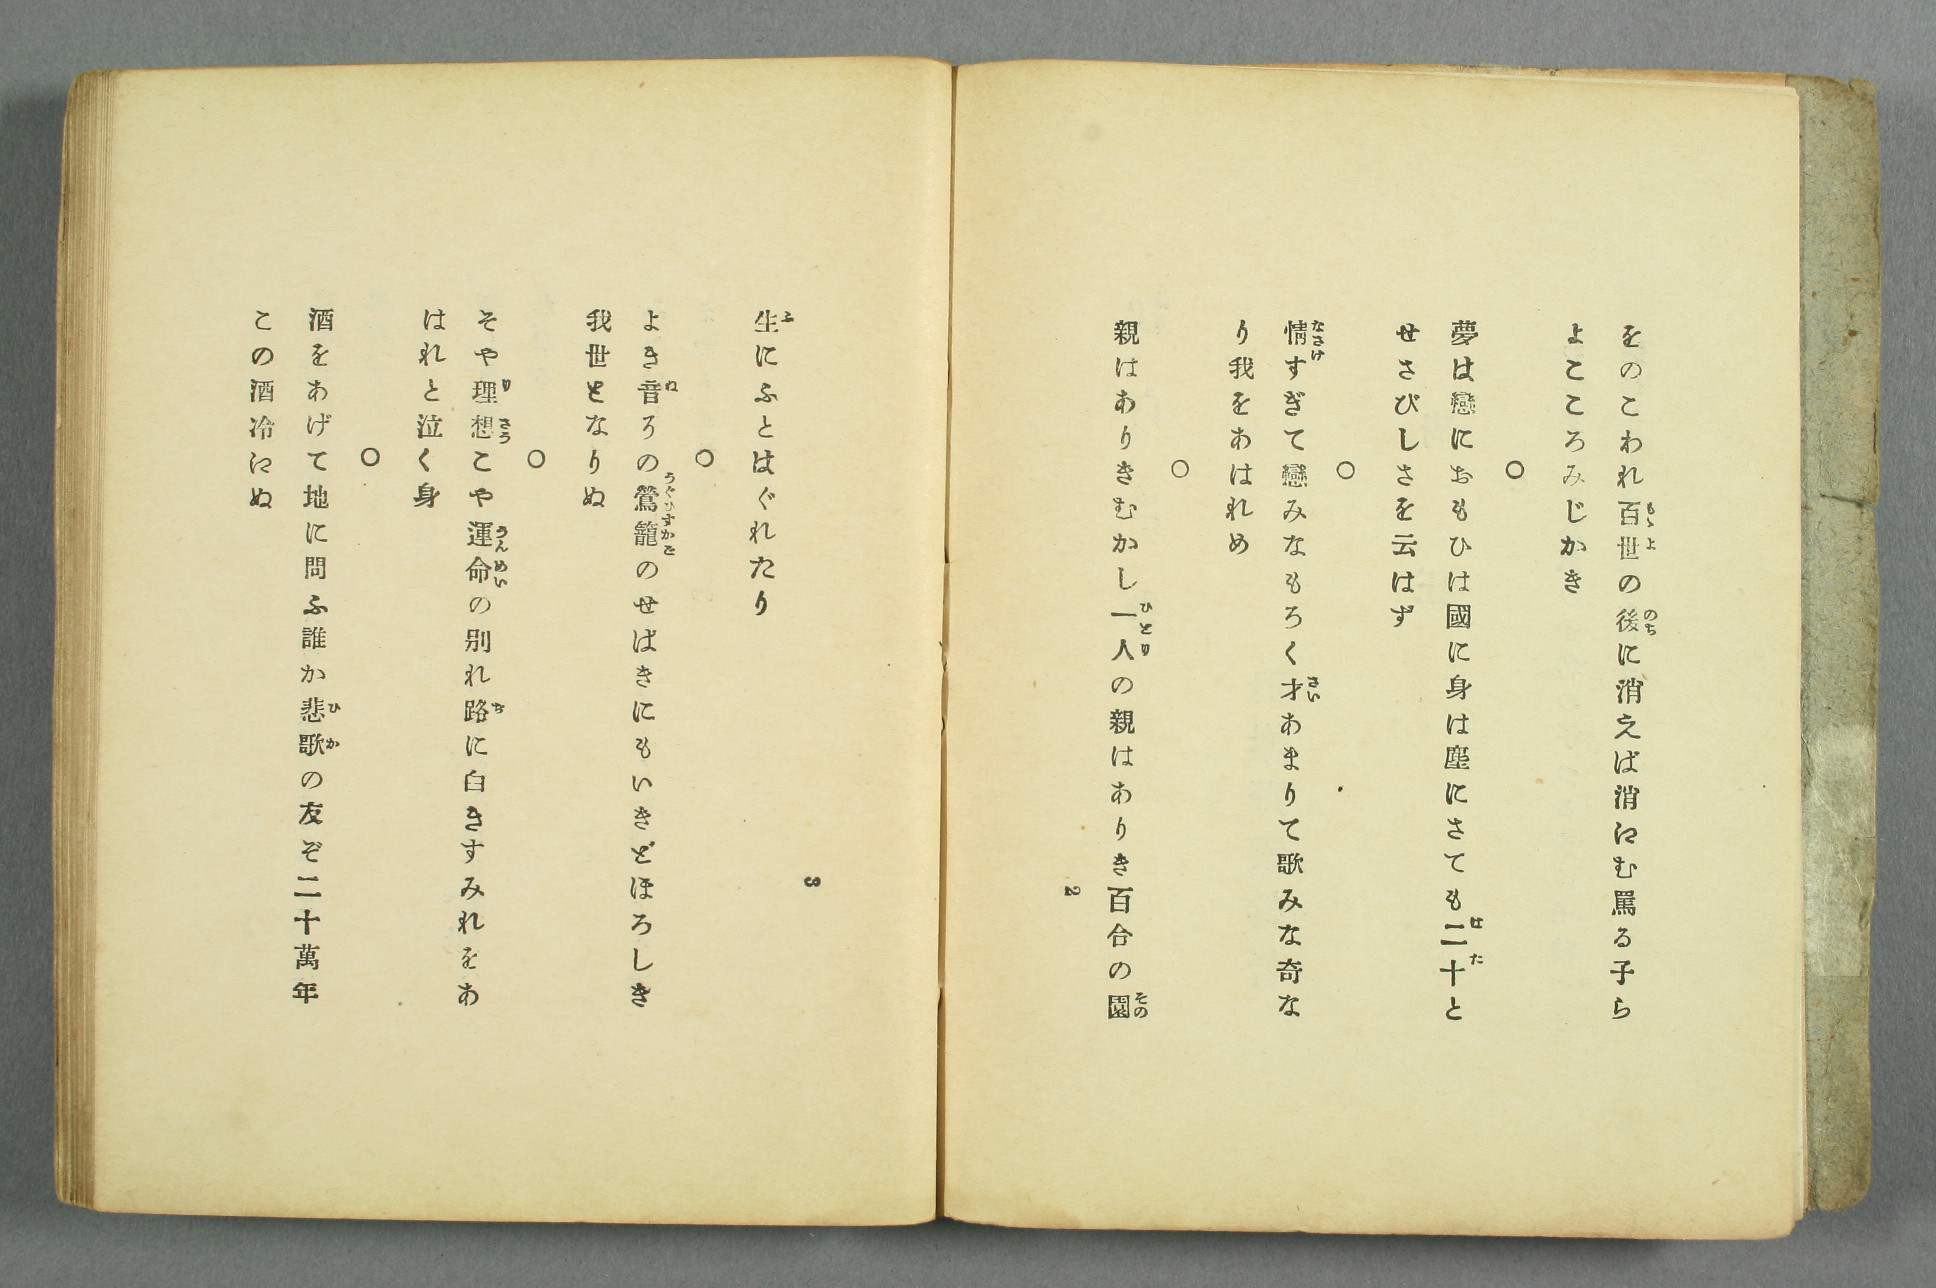 をのこわれ百世の後に消えば消えむ罵る子ら
よこころみじかき
○
夢は戀におもひは國に身は塵にさても二十と
せさびしさを云はず
○
情すぎて戀みなもろく才あまりて歌みな奇な
り我をあはれめ
○
親はありきむかし一人の親はありき百合の園
2
3
生にふとはぐれたり
○
よき音ろの鶯籠のせばきにもいきどほろしき
我世となりぬ
○
そや理想こや運命の別れ路に白きすみれをあ
はれと泣く身
○
酒をあげて地に問ふ誰か悲歌の友ぞ二十萬年
この酒冷えぬ